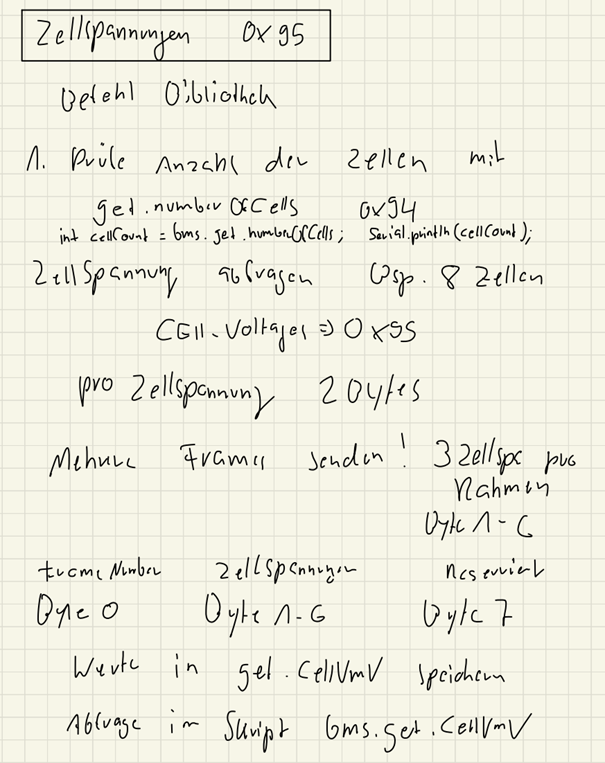 Zellspannungen 0x95
Befehl Bibliothek
1. Prüfe Anzahl der Zellen mit
get.numberOfCells 0x94
int cellCount = bms.get.numberOfCells; Serial.println(cellCount);
Zellspannung abfragen Bsp. 8 Zellen
CELL-Voltages => 0x95
pro Zellspannung 2 Bytes
Mehrere Frames senden! 3 Zellspa pro
Rahmen
Byte 1-6
Frame Number Zellspannungen Reserviert
Byte 0 Byte 1-6 Byte 7
Werte in get.CellVmV speichern
Abfrage im Skript bms.get.CellVmV